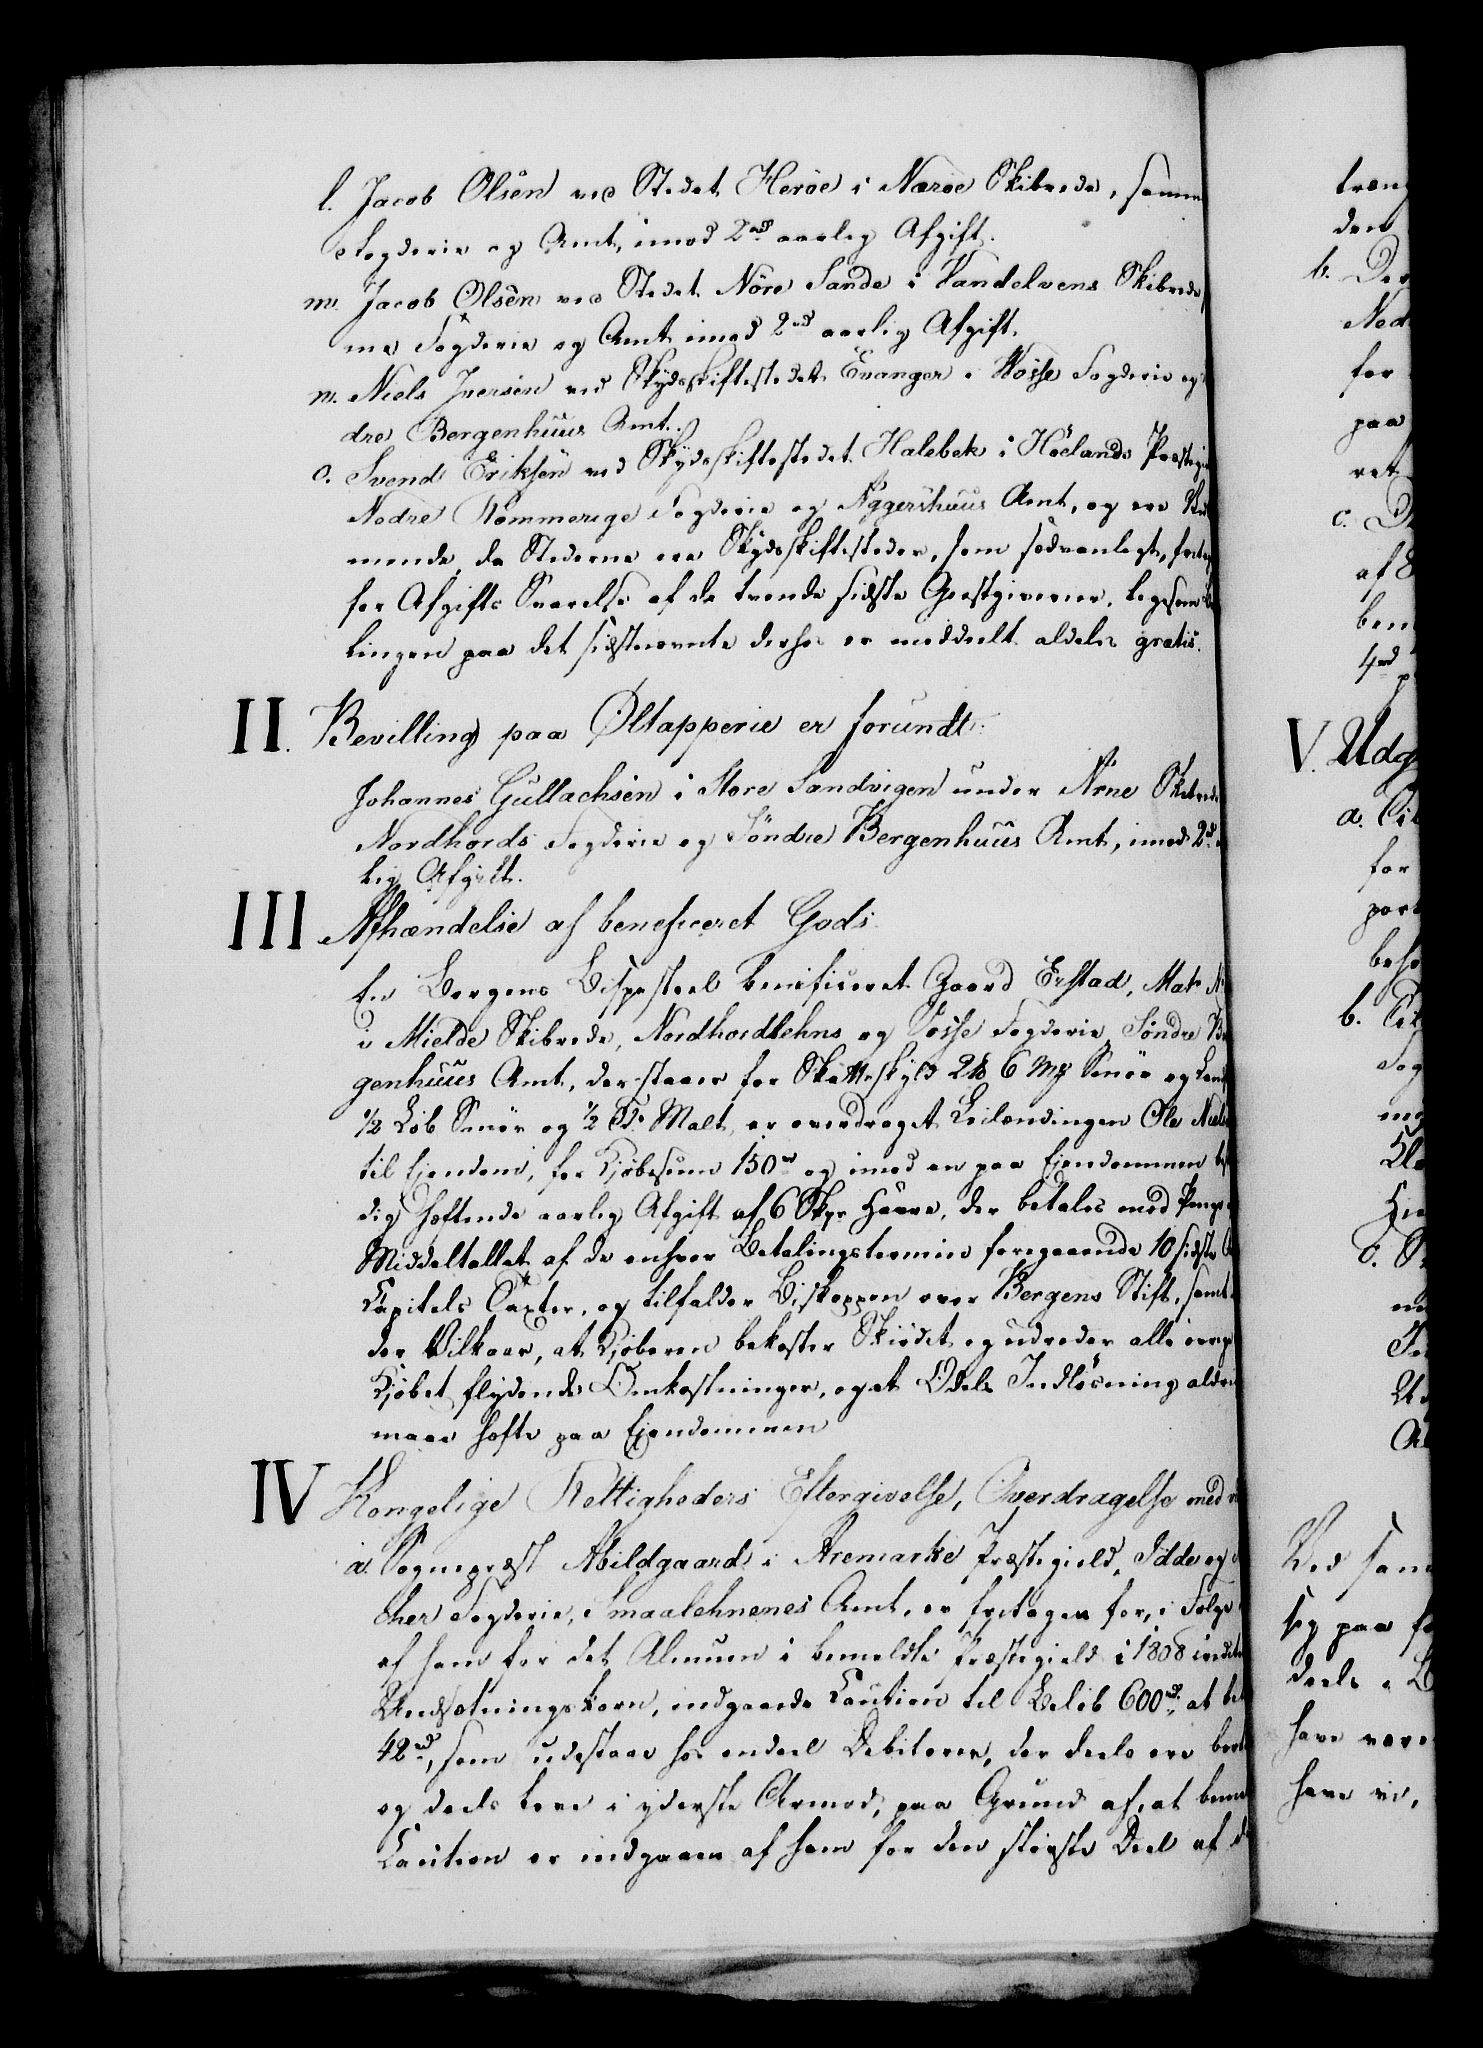 l. Jacob Olsen ved Stedet Herøe i Nærøe Skibrede, samme
Fogderie og Amt, imod 2rd aarlig Afgift.
m. Jacob Olsen ved Stedet Nöre Sande i Vandelvens Skibrede
me Fogderie og Amt imod 2rd aarlig Afgift.
n. Niels Iversen ved Skydsskiftestedet Evanger i Vosse Fogderie og
dre Bergenhuus Amt.
o. Svend Eriksen ved Skydsskiftestedet Halebek i Høelands Præstegi
Nedre Rommerige Fogderie og Aggershuus Amt, og ere
mende, da Stederne ere Skydsskiftesteder, som sedvanligt, fritag
for Afgifts Svarelse af de trende sidste Gjestgiverier, ligesom
lingen paa det sidstnævnte derhos er meddeelt aldeles gratis.
II. Bevilling paa Øltapperie er forundt:
Johannes Gullachsen i Store Sandvigen under Arne Skibrede
Nordhords Fogderie og Søndre Bergenhuus Amt, imod 2rd
lig Afgift.
III Afhændelse af beneficeret Gods
En Bergens Bispestoel beneficeret Gaard Erstad, Matr. N
i Mielde Skibrede, Nordhordlehns og Vosse Fogderie, Søndre B
genhuus Amt, der staaer for Skatteskyld 2 lb 6 Mk Smør og Land
1/2 Løb Smør og 1/2 Td. Malt, er overdraget Leilændingen Ole Niels
til Eiendom, for Kjøbesum 150 rd og imod en paa Eiendommen be
dig heftende aarlig Afgift af 6 Skpr Havre, der betales med Penge
Middeltallet af de enhver Betalingstermin foregaaende 10 sidste
Capitels Taxter, og tilfalder Biskoppen over Bergens Stift, samt
der Vilkaar, at Kjøberen bekoster Skiødet og udreder alle øvrig
Kjøbet flydende Omkostninger, og at Odels Indløsning aldri
maae hefte paa Eiendommen
IV Kongelige Rettigheders Eftergivelse, Overdragelse med
a. Sognepræst Abildgaard i Aremarke Præstegield, Idde og
cher Fogderie, Smaalehnenes Amt, er fritagen for, i Følge
af ham for det Almuen i bemeldte Præstegield i 1808
Undsætningskorn, indgaaede Caution til Beløb 600rd, at bet
42rd, som udestaae hos endeel Debitorer, der deels ere
og deels leve i yderste Armod, paa Grund af, at beme
Caution er indgaaen af ham for den største Deel af d
træng
den
b. Der
Ned
for
paa
ret
c. D
af E
ben
4rd p
V. Udg
a. Cit
for
port
beho
b. Cit
Fog
Ved sam
sig paa f
deels i B
have være
have vi,